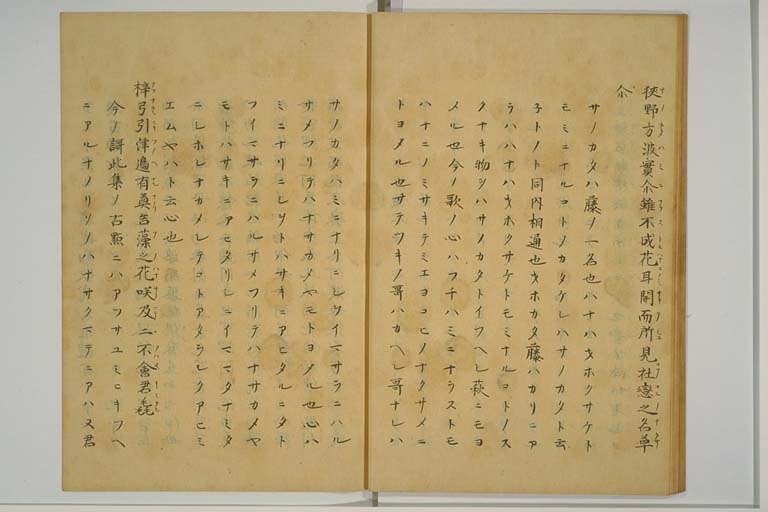 狹野方波實尒雖不成花耳開而所見社戀之名草
尒
サノカタハ藤ノ一名也ハナハオホクサケト
モミニナルコトノカタケレハサノカタト云
子トノト同内相通也オホカタ藤ハカリニア
ラハハナハオホクサケトモミナルコトノス
クナキ物ヲハサノカタトイフヘレ萩ニモヨ
メル也今ノ歌ノ心ハフチハミニナラストモ
ハナニノミサキテミエヨコヒノナクサメニ
トヨメル也サテツキノ哥ハカヘレ哥ナレハ
サノカタハミニナリニレヲイマサラニハル
サメフリテハナサカメヤモトヨメル也心ハ
ミニナリニレヲトハサキニアヒタルニタト
フイマサラニハルサメフリテハナサカメヤ
モトハサキニアヒタリレニイママタナミタ
ニレホレナカメレテコトアタラレクアヒミ
エムヤハト云心也
梓弓引津邊有莫告藻之花咲及二不會君毳
今ノ謌此集ノ古點ニハアツサユミヒキツヘ
ニアルナノリソノハナサクマテニアハヌ君